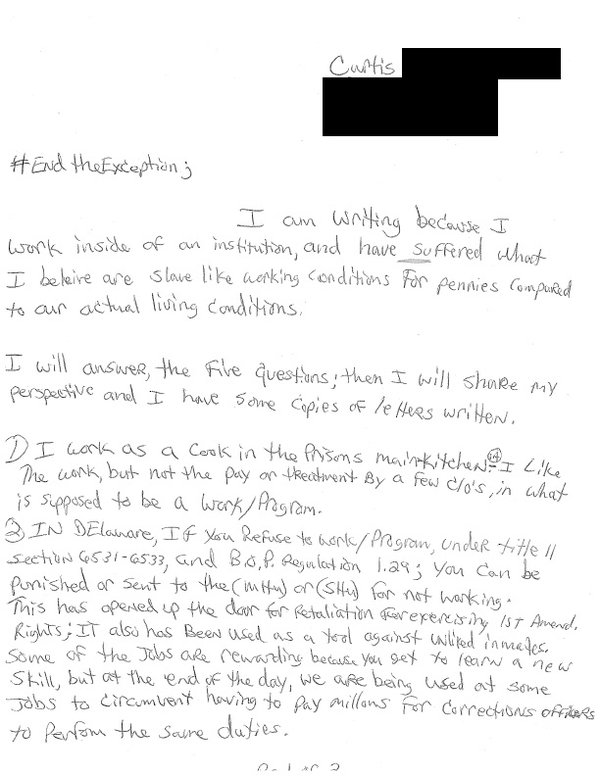 Curtis
#EndtheException;
I am writing because I
work inside of an institution, and have suffered what
I beleive are slave like working conditions for pennies compared
to our actual living conditions.
I will answer, the Five questions; then I will share my
perspective and I have some copies of letters written.
1) I work as a cook in the Prisons main-kitchen. I Like
The work, but not the pay or treatment By a few c/o's, in what
is supposed to be a work/Program.
2) IN DElaware, IF You Refuse to work/Program, under title 11
section 6531-6533, and B.O.P. Regulation 1.29; You can be
punished or sent to the (MHU) or (SHU) for not working.
This has opened up the door for Retaliation for exercising 1ST Amend.
Rights; IT also has Been used as a tool against unliked inmates.
Some of the Jobs are rewarding because you get to learn a new
skill, but at the end of the day, we are being used at some
Jobs to circumvent having to pay millons for corrections officers
to Perform the same duties.